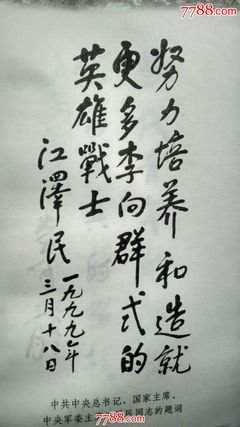 7788.com
努力培养和造就
更多李向群式的
英雄战士
江泽民
一九九九年
三月十八日
中共中央总书记、国家主席、
中央军委主 民同志的题词
7788.com